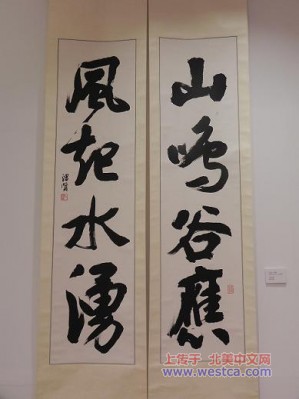 山鳴谷應
風起水湧
上传于 北美中文网
www.westca.com